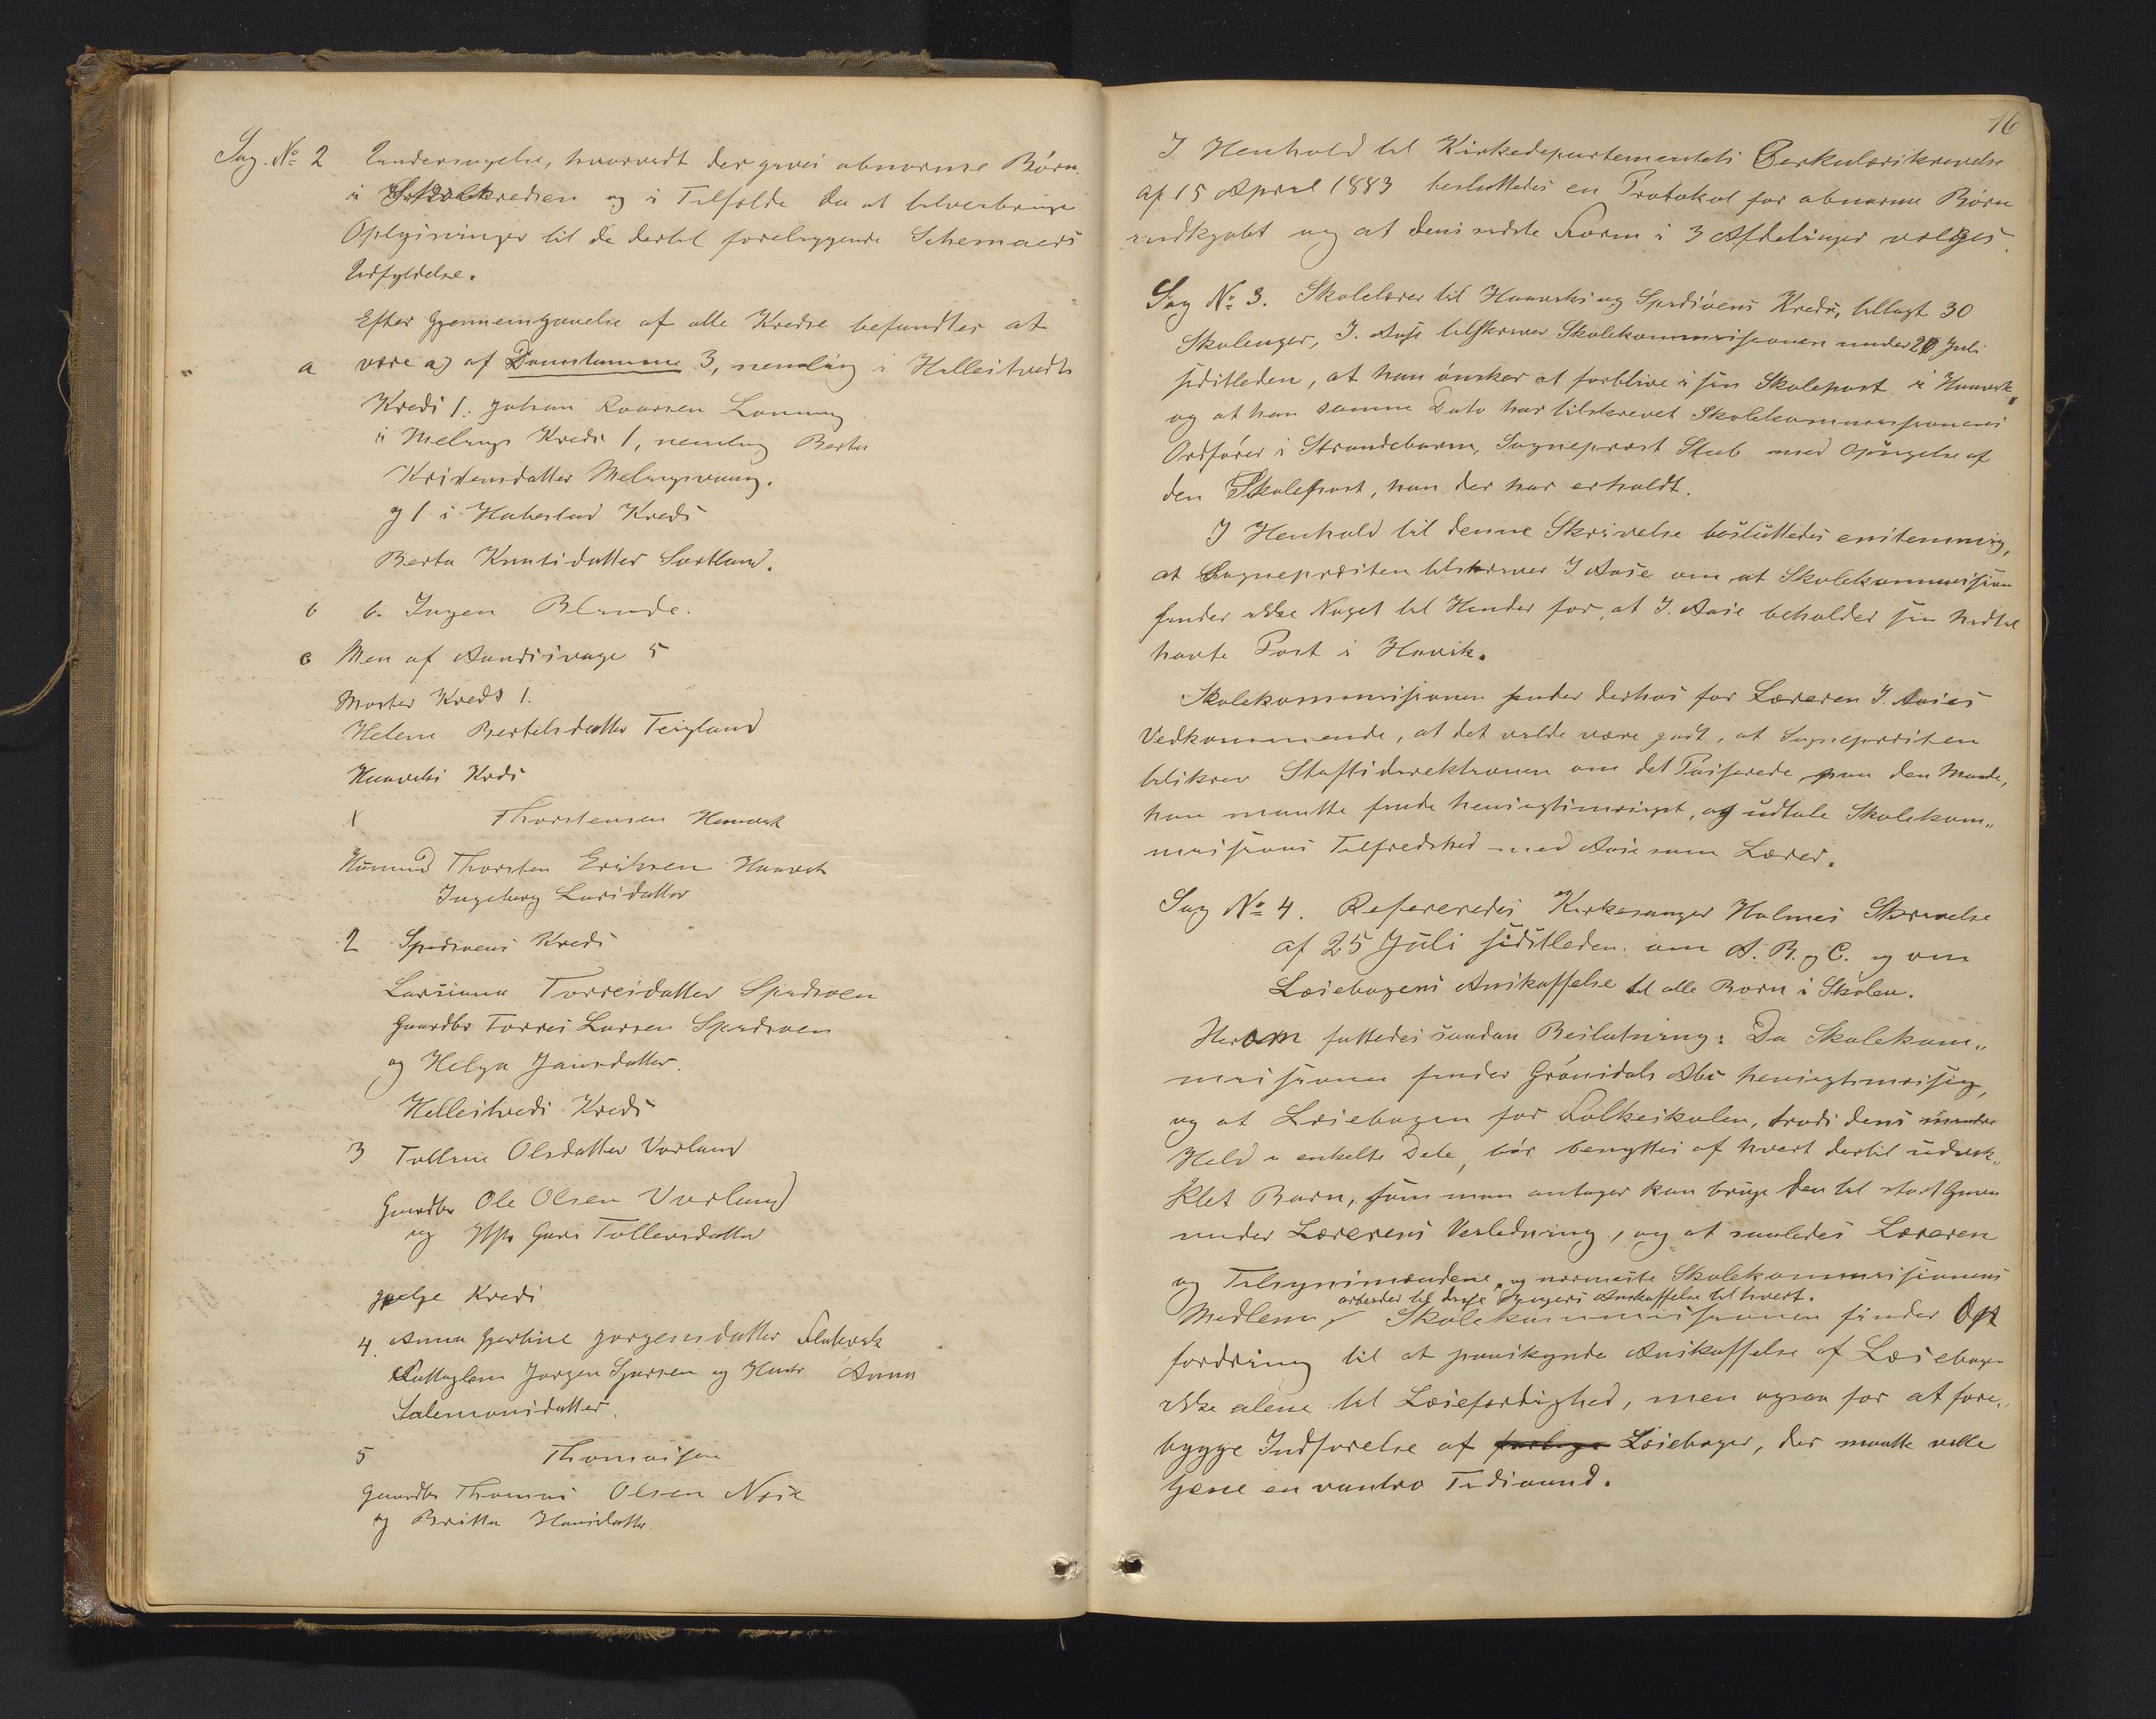 Sag. No 2 Undersøgelse, hvorvidt der gives abnorme Børn
i Skolekredsen og i Tilfælde da at tilveiebringe
Oplysninger til de dertil foreliggende Schemaers
Udfyldelse.
Efter Gjennemgaaelse af alle Kredse befandtes at
a være a) af Døvstumme 3, nemlig i Helleitvedts
Kreds 1. Johan Roarsen Lønning
i Melings Kreds 1, nemlig Berta
Kristensdatter Melingsvaag.
og 1 i Habestad Kreds
Berta Knutsdatter Sortland.
b b. Ingen Blinde.
c Men af Aandssvage 5
Moster Kreds 1.
Helene Bertelsdatter Teigland
Haaviks Krds
1 Thorstensen Haavik
Huusmd Thorsten Eriksen Haavik
Ingeborg Larsdatter
2 Spidsøens Kreds
Larsianna Torresdatter Spidsøen
Gaardbr Torres Larsen Spidsøen
og Helga Jansdatter.
Helleitveds Kreds
3 Tolline Olsdatter Vorland
Gaardbr Ole Olsen Vorland
og Guri Tollevsdatter
Kreds
4. Anna Gjertine Jørgensdatter
Jørgen Sjursen og Hustr Anna
Salemonsdatter.
5 Thomassen
Gaardbr Thomas Olsen
og Britta Hansdatter.
16
I Henhold til Kirkedepartementets Cerkulærskrivelse
af 15 April 1883 besluttedes en Protokol for abnorme Børn
indkjøbt og at dens sidste Form i 3 Afdelinger vælges.
Sag No 3. Skolelærer til Haaviks og Spidsøens Kreds, tillagt 30
Skoleuger, I. Aase tilskriver Skolekommissionen under 20 Juli
sidstleden, at han ønsker at forblive i sin Skolepost i Haavik,
og at han samme Dato har tilskrevet Skolekommissionens
Ordfører i Strandebarm, Sogneprest Stub med Opsigelse af
den Skolepost, han der har erholdt.
I Henhold til denne Skrivelse besluttedes enstemmig,
at Sognepresten tilskriver I Aase om at Skolekommission
finder ikke Noget til Hinder for, at I. Aase beholder sin hidtil
havte Post i Havik.
Skolekommissionen finder derhos for Læreren I. Aases
Vedkommende, at det vilde være godt, at Sognepresten
tilskrev Stiftsdirektionen om det Passerede paa den Maade,
han maatte finde hensigtsmæssigst, og udtale Skolekom„
missions Tilfredshed med Aase som Lærer.
Sag No 4. Refereredes Kirkesanger Holmes Skrivelse
af 25 Juli sidstleden. om A. B. og C. og om
Læsebogens Anskaffelse til alle Børn i Skolen.
Herom fattedes saadan Beslutning: Da Skolekom„
missionen finder Grønsdals Abc hensigtsmæssig,
og at Læsebogen for Folkeskolen, trods dens mindre
Held i enkelte Dele, bør benyttes af hvert dertil udvik„
klet Barn, som man antager kan bruge den til stort Gavn
under Lærerens Veiledning, og at saaledes Læreren
og Tilsynsmændene, og nærmeste Skolekommissionens
arbeider til disse Bøgers Anskaffelse til hvert.
Medlem, Skolekommissionen finder Op
fordring til at paaskynde Anskaffelse af Læsebogen
ikke alene til Læsefærdighed, men ogsaa for at fore„
bygge Indførelse af farlige Læsebøger, der maatte ville
tjene en vantro Tidsaand.